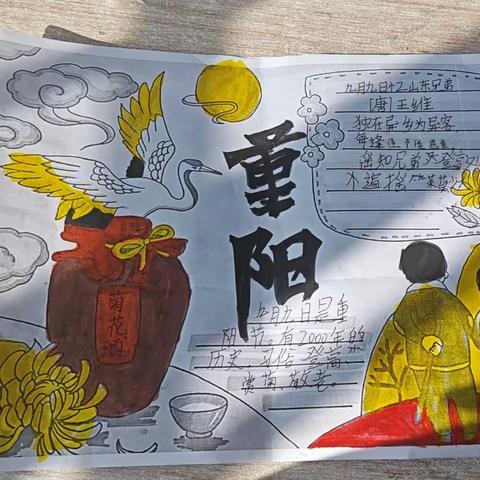 重阳
九月九日忆山东兄弟
[唐]王维
独在异乡为异客
每逢佳节倍思亲
遥知兄弟登高
不遍插茱萸
菊花酒
九月九日是重
阳节。有2000年的
历史，习俗登高
赏菊敬老。